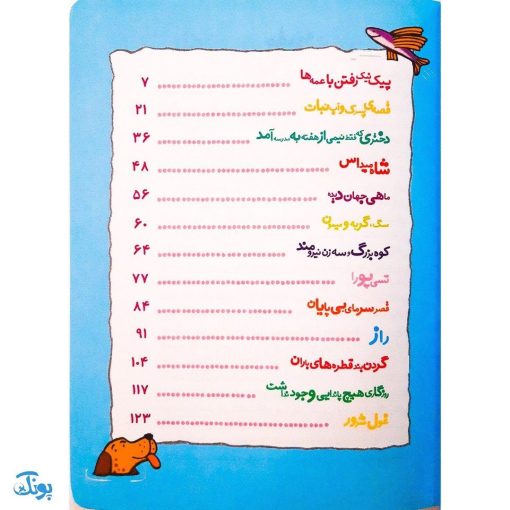 پیک نیک رفتن با عمه ها ۷
قصه‌ی پسرک و آب نبات ۲۱
دختری که فقط نیمی از هفته به مدرسه آمد ۳۶
شاه میداس ۴۸
ماهی جهان دیده ۵۶
سگ، گربه و میمون ۶۰
کوه بزرگ و سه زن نیرومند ۶۴
تسی پورا ۷۷
قصر سرمای بی پایان ۸۴
راز ۹۱
گردن بند قطره های باران ۱۰۴
روزگاری هیچ پادشایی وجود نداشت ۱۱۷
غول شرور ۱۲۳
پونک